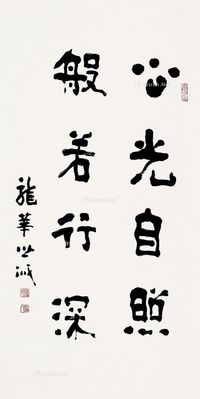 心光自照
般若行深
龍華必誠